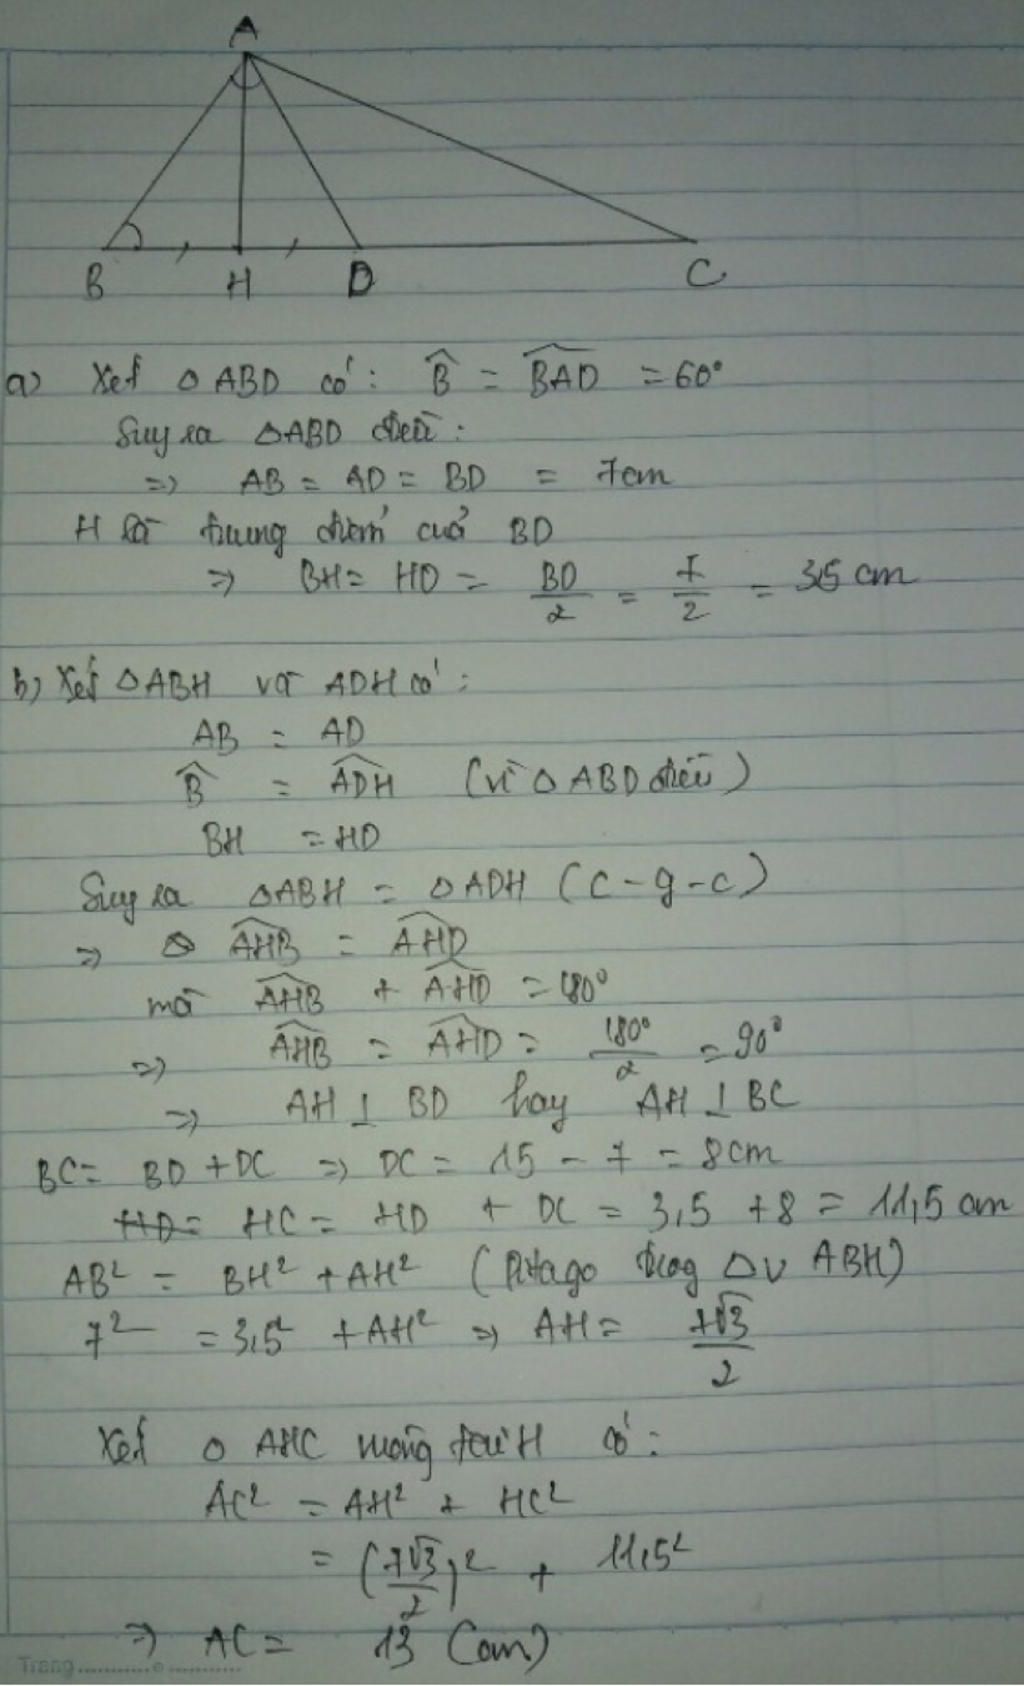 A
B H D C
a) Xét △ABD có: B̂ = \widehat{BAD} = 60°
Suy ra △ABD đều:
=> AB = AD = BD = 7cm
H là trung điểm của BD
=> BH = HD = \frac{BD}{2} = \frac{7}{2} = 3,5 cm
b) Xét △ABH và ADH có:
AB = AD
B̂ = \widehat{ADH} (vì △ABD đều)
BH = HD
Suy ra △ABH = △ADH (c-g-c)
=> \widehat{AHB} = \widehat{AHD}
mà \widehat{AHB} + \widehat{AHD} = 180°
=> \widehat{AHB} = \widehat{AHD} = \frac{180°}{2} = 90°
=> AH ⊥ BD hay AH ⊥ BC
BC = BD + DC => DC = 15 - 7 = 8cm
~~HD =~~ HC = HD + DC = 3,5 + 8 = 11,5 cm
AB² = BH² + AH² (Pitago trog △v ABH)
7² = 3,5² + AH² => AH = \frac{7√3}{2}
Xét △ AHC vuông tại H có:
AC² = AH² + HC²
= (\frac{7√3}{2})² + 11,5²
=> AC = 13 (cm)
Trang